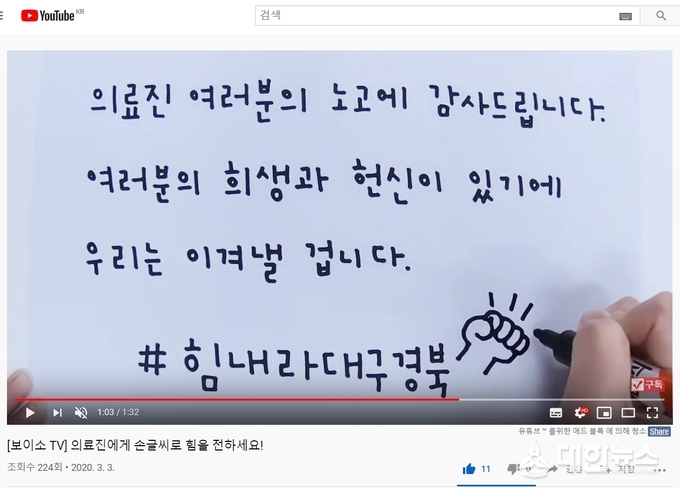 YouTube KR
검색
의료진 여러분의 노고에 감사드립니다.
여러분의 희생과 헌신이 있기에
우리는 이겨낼 겁니다.
#힘내라대구경북
구독
1:03 / 1:32
HD
유튜브™를위한 애드 블록 에 의해 청소 Share
[보이소 TV] 의료진에게 손글씨로 힘을 전하세요!
조회수 224회 • 2020. 3. 3.
11 0 저장
대한뉴스